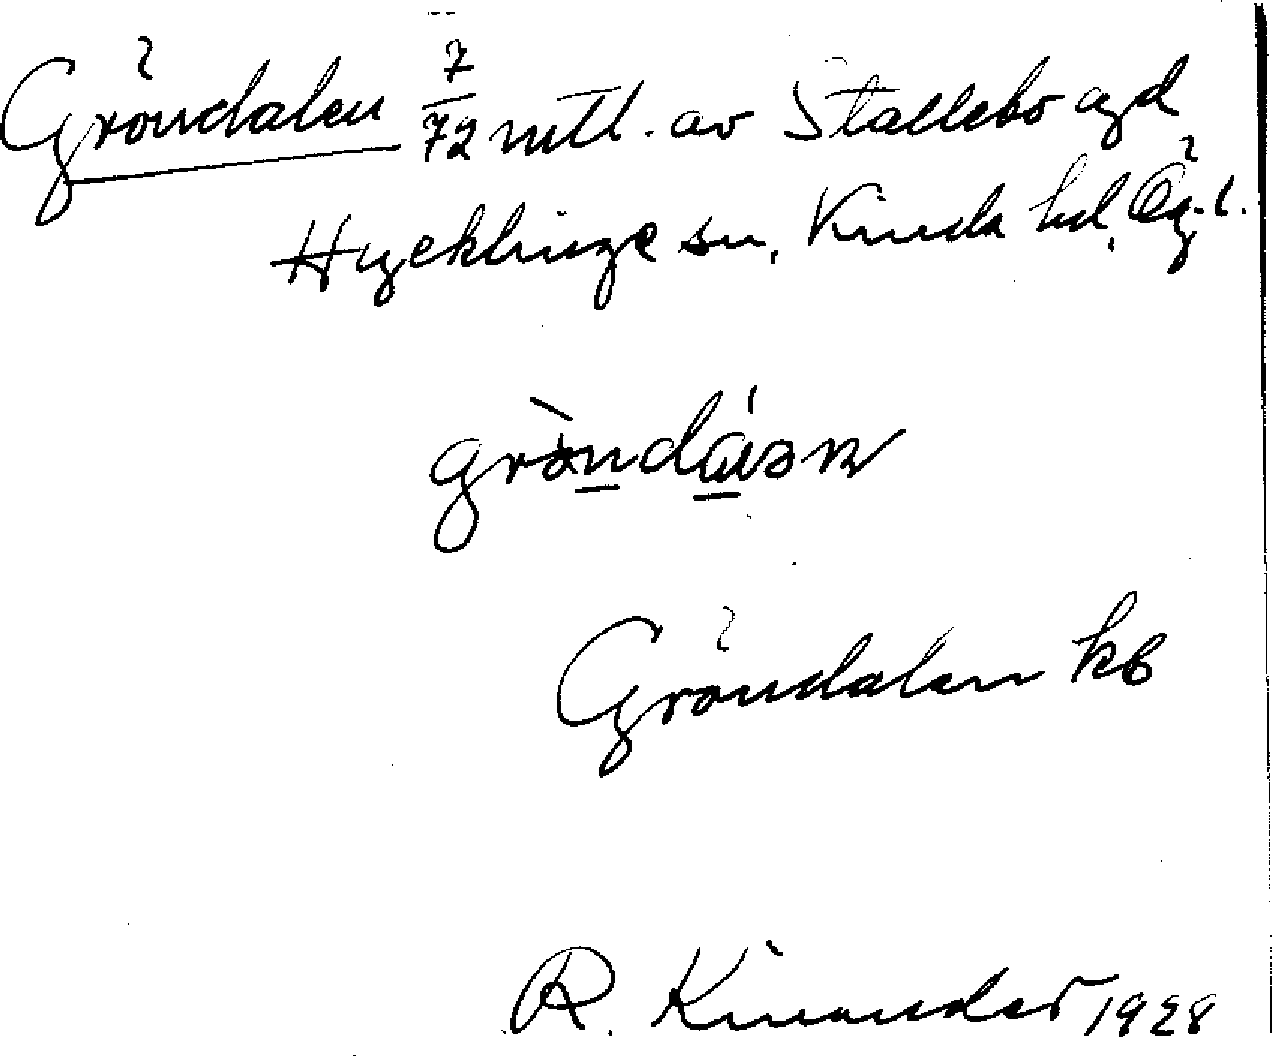 Gröndalen 7/72 mtl. av Stallebo egd
Hycklinge sn, Kinda hd, Ög.l.
Gröndalen kb
R. Kinander 1928